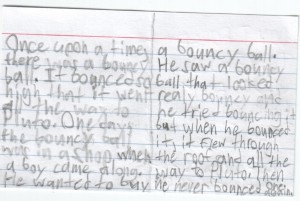 Once upon a times
there was a bouncy
ball. It bounced so
high that it went
all the way to
Pluto. One day
the bouncy ball
was in a shop when
a boy came along.
He wanted to buy
a bouncy ball.
He saw a bouncy
ball that looked
realy bouncy and
he tried bouncing it
but when he bounced
it, it flew through
the roof and all the
way to Pluto. Then
he never bounced again.